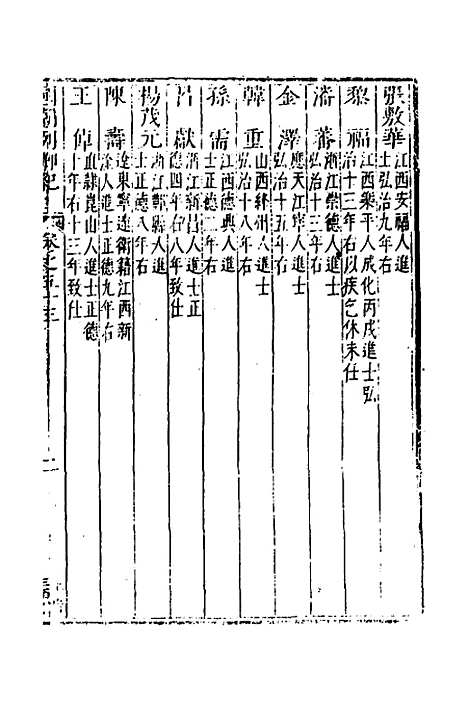 張敷華 江西安福人進士弘治九年右
黎福 江西樂平人成化丙戌進士弘治十三年右以疾乞休未任
潘蕃 浙江崇德人進士弘治十三年右
金澤 應天江寧人進士弘治十五年右
韓重 山西絳州人進士弘治十八年右
孫需 江西德興人進士正德二年右
呂獻 浙江新昌人進士正德四年右八年致仕
楊茂元 浙江鄞縣人進士正德八年右
陳壽 遼東寧遠衛籍江西新淦人進士正德九年右
王倬 直隸崑山人進士正德十年右十三年致仕
國朝列卿紀 卷之五十三